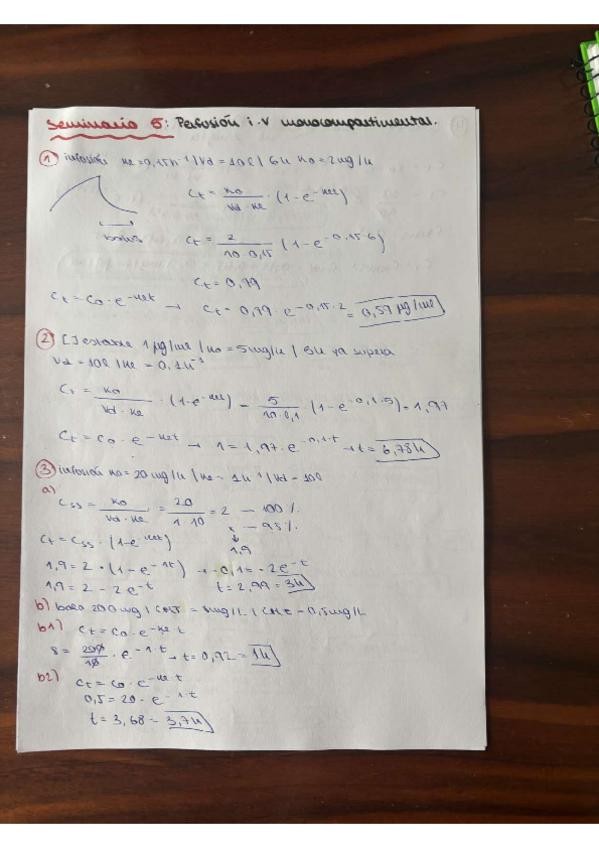 Seminario 5: Perfusión i.v monocompartimental.
① infusión ke = 0,15h⁻¹ / Vd = 10l / 6h k0 = 2mg/h
Ct = k0 / Vd·ke · (1-e^-ket)
bolus
Ct = 2 / 10·0,15 (1-e^-0,15·6)
Ct = 0,79
Ct = C0·e^-ket → Ct = 0,79·e^-0,15·2 = 0,59 µg/ml
② [ ] estable 1µg/ml / k0 = 5mg/h / 5h ya supera
Vd = 10l / ke = 0,1h⁻¹
Ct = k0 / Vd·ke · (1-e^-ket) = 5 / 10·0,1 · (1-e^-0,1·5) = 1,97
Ct = C0·e^-ket → 1 = 1,97·e^-0,1·t → t = 6,78h
③ infusión k0 = 20mg/h / ke = 1h⁻¹ / Vd = 10l
a)
Css = k0 / Vd·ke = 20 / 1·10 = 2 — 100%
x — 95%
↓
1,9
Ct = Css·(1-e^-ket)
1,9 = 2·(1-e^-1t) → -0,1 = -2e^-t
1,9 = 2 - 2e^-t t = 2,99 = 3h
b) bolo 200mg / = 8mg/L / = 0,5mg/L
b1) Ct = C0·e^-ke·t
8 = 200 / 10 · e^-1·t → t = 0,92 = 1h
b2) Ct = C0·e^-ke·t
0,5 = 20·e^-1·t
t = 3,68 = 3,7h